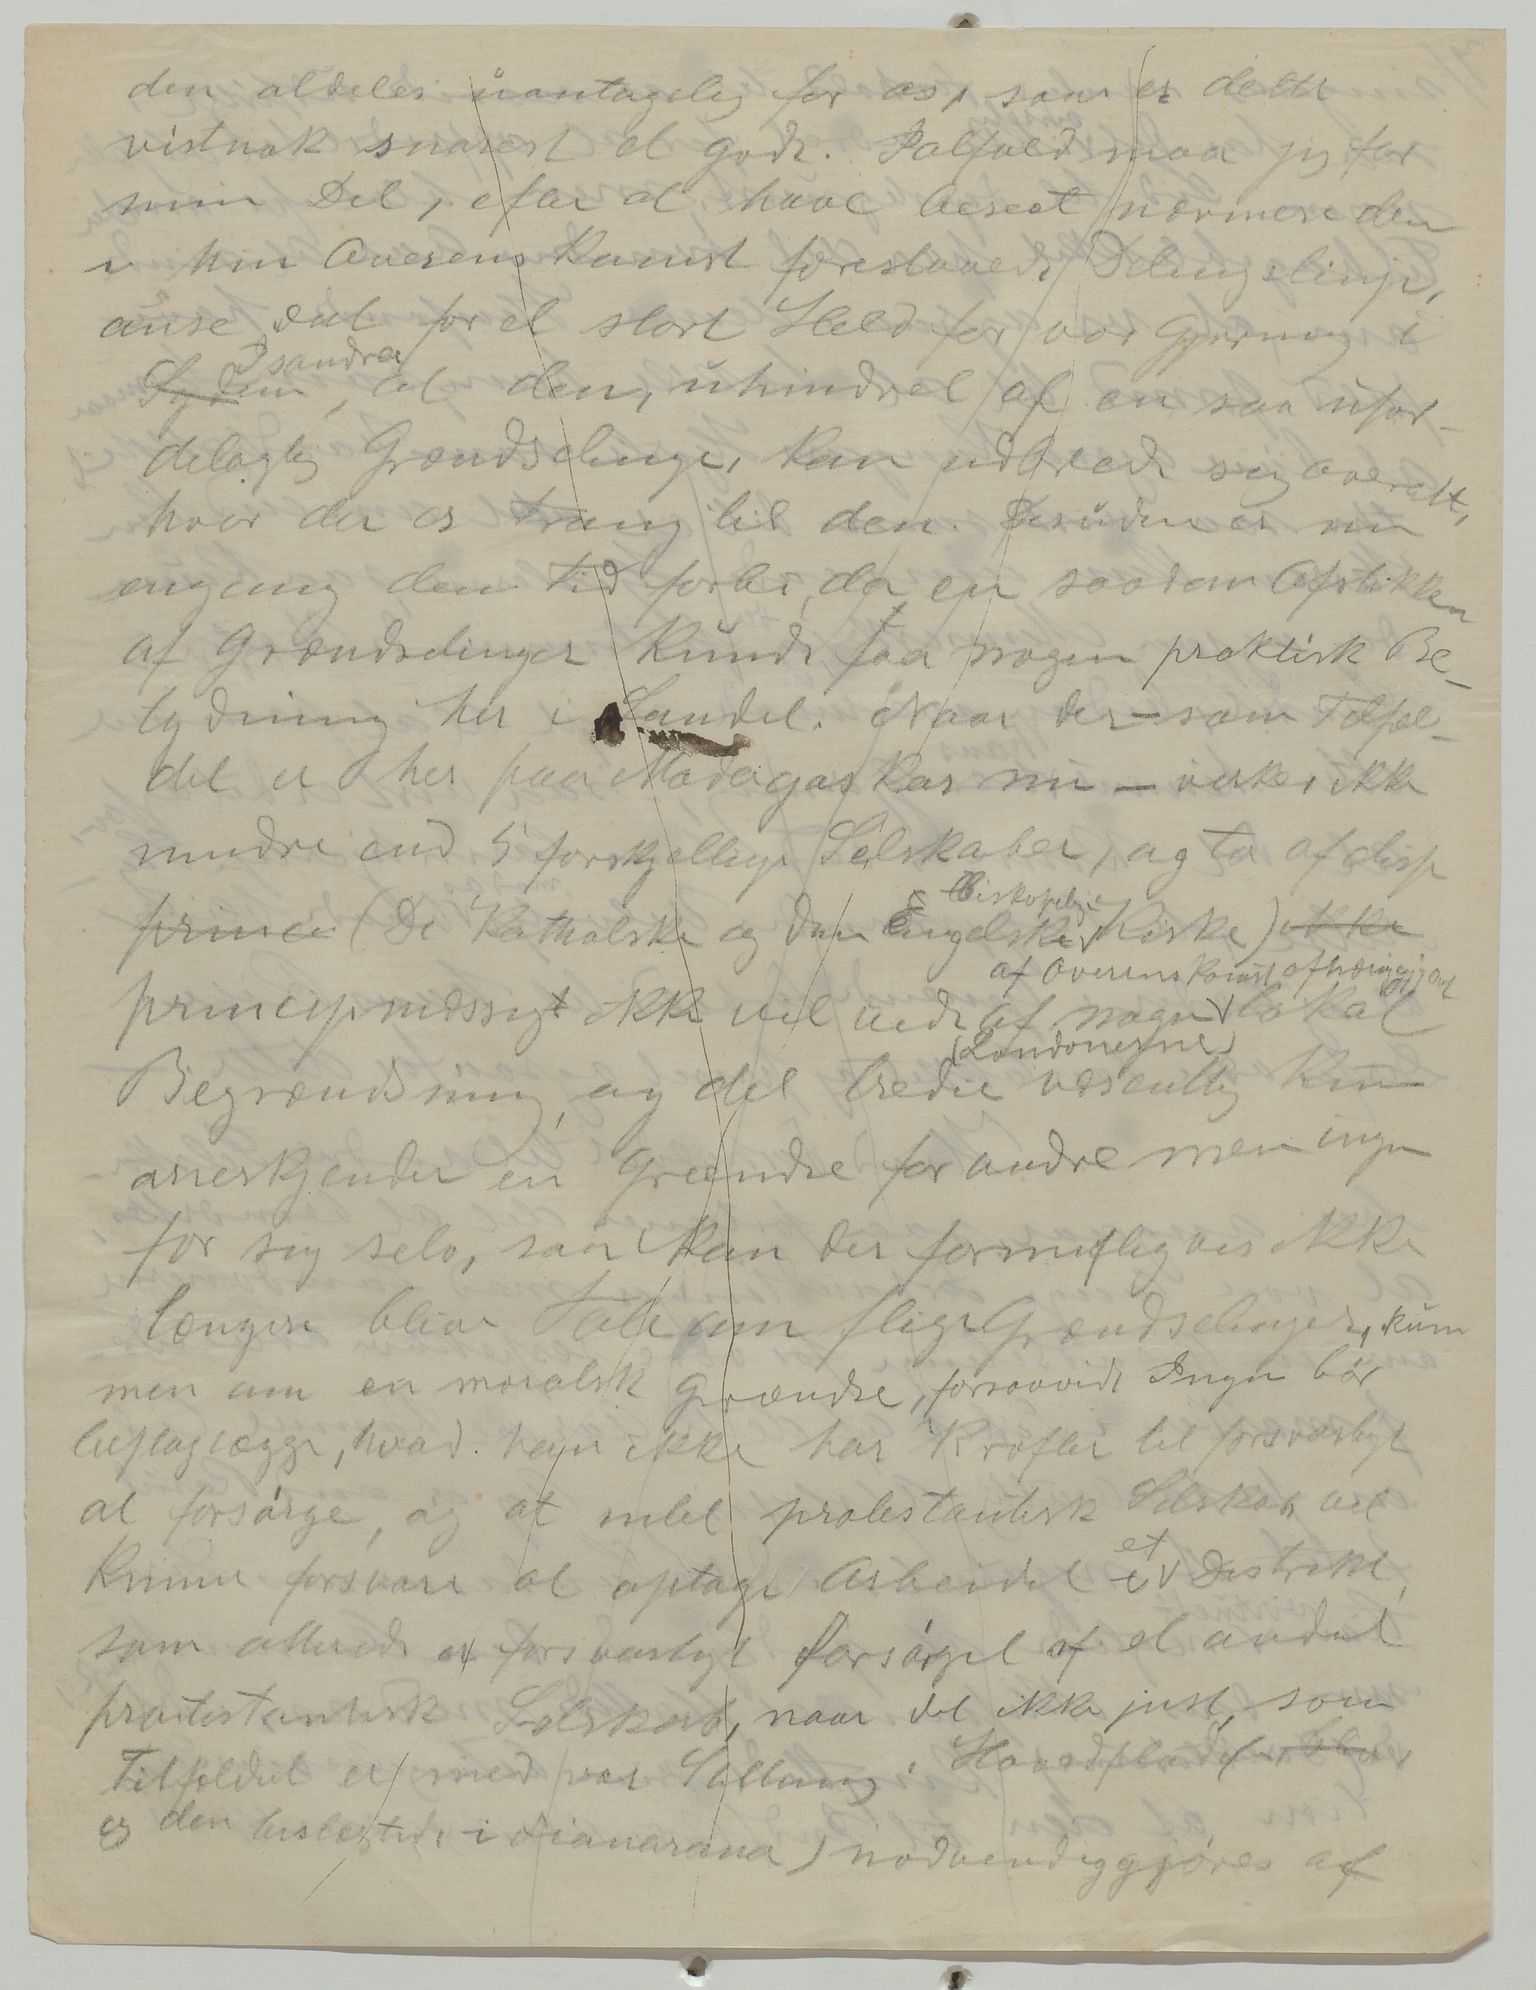 den aldeles uantagelig for os, som er dette
vistnok snarest et gode. Ialfald maa jeg for
min Del, efter at have beseet nærmere den
i hin Overenskomst foreslaaede Delingslinje,
anse det for et stort Held for vor Gjerning i
Isandra
Syden, at den, uhindret af en saa ufor-
delagtig Grændselinge, kan udbrede sig overalt,
hvor der er Trang til den. Desuden er nu
engang den Tid forbi, da en saadan Afstikken
af Grændselinger kunde faa nogen praktisk Be-
tydning her i Landet. Naar der – som Tilfæl-
det er her paa Madagaskar nu – virker ikke
mindre end 5 forskjellige Selskaber, og to af disse
Biskopelige
princi (De Katholske og den Engelske Kirke) ikke
af Overenskomst afhængig
principmæssigt ikke vil vide af nogen lokal
(Londonerne)
Begrændsning, og det tredie væsentlig kun
anerkjender en Grændse for andre men ingen
for sig selv, saa kan der fornuftigvis ikke
længere blive Tale om slige Grændselinger, kun
men om en moralsk Grændse, forsaavidt Ingen bør
beslaglægge, hvad han ikke har Kræfter til forsvarligt
at forsørge, og at intet protestantisk Selskab vil
et
kunne forsvare at optage Arbeidet i Distrikt,
som allerede er forsvarligt forsørget af et andet
protestantisk Selskab, naar det ikke just, som
Tilfældet er med vor Stilling i Hovedstaden
og den beslægtede i Fianarana) nødvendiggjøres af